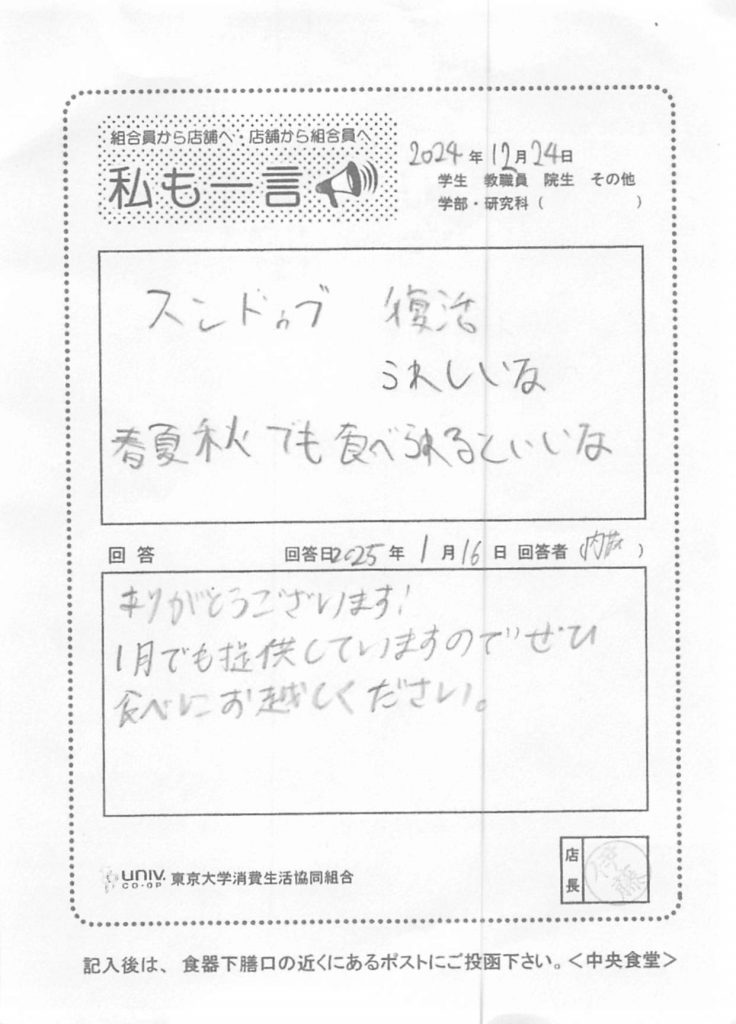 組合員から店舗へ・店舗から組合員へ
私も一言
2024年12月24日
学生 教職員 院生 その他
学部・研究科( )
スンドゥブ 復活
うれしいな
春夏秋でも食べられるといいな
回答 回答日2025年1月16日 回答者( )
ありがとうございます!
1月でも提供していますのでぜひ
食べにお越しください。
UNIV. CO-OP 東京大学消費生活協同組合
店長 伊藤
記入後は、食器下膳口の近くにあるポストにご投函下さい。<中央食堂>